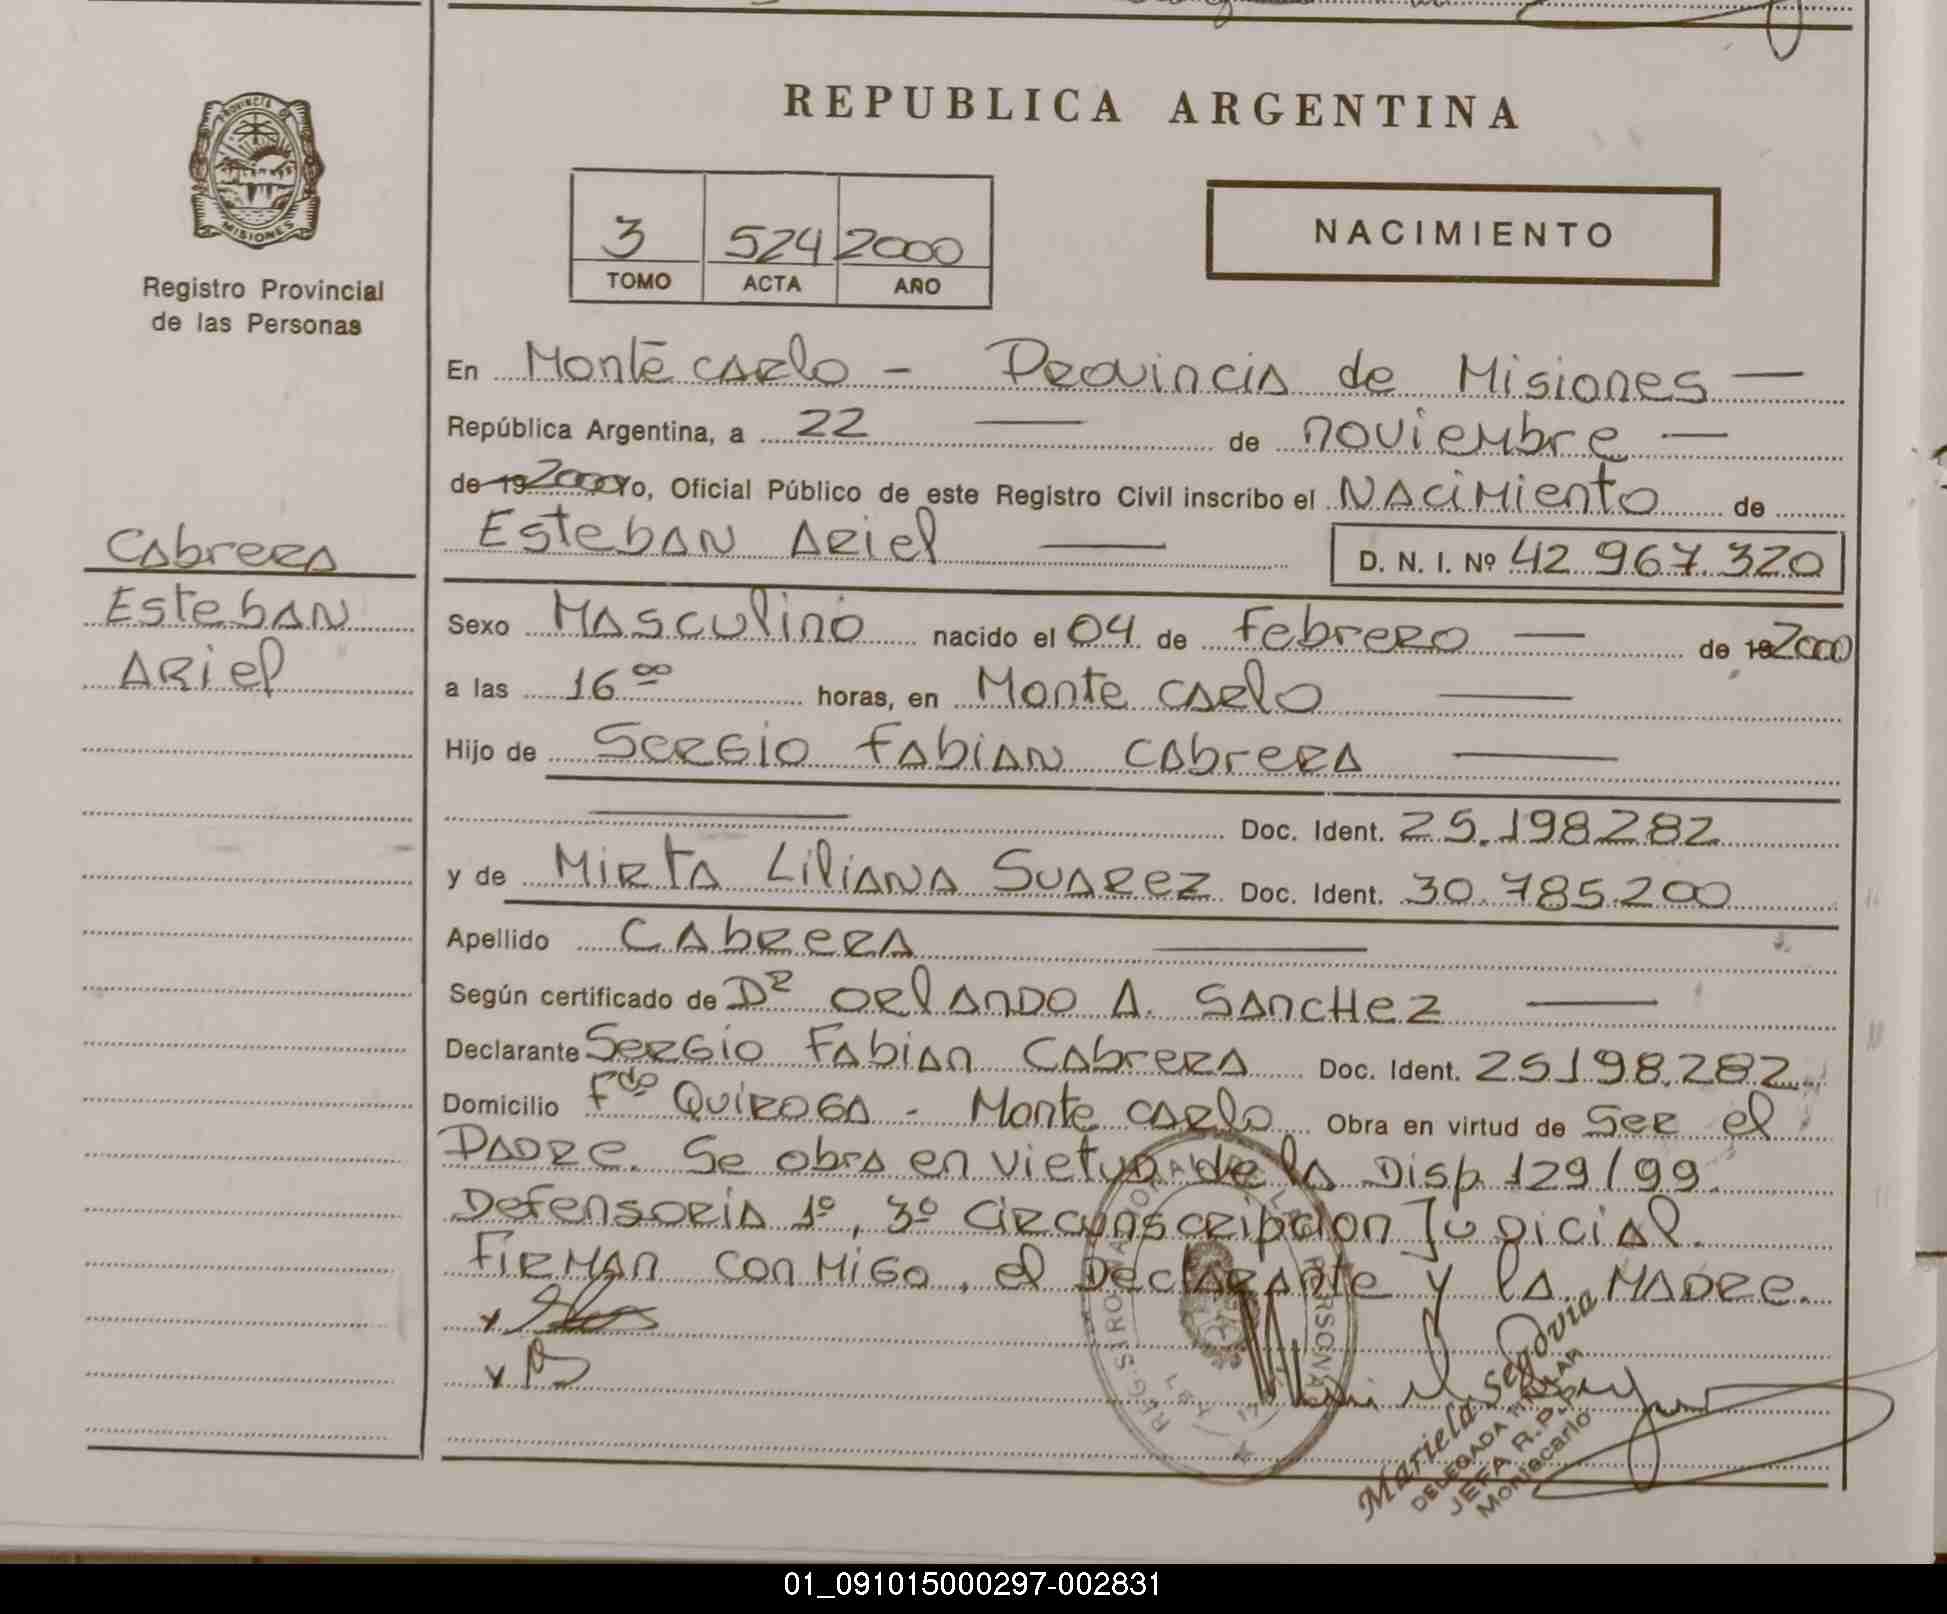 REPUBLICA ARGENTINA
PROVINCIA DE
MISIONES
Registro Provincial
de las Personas
3 524 2000
TOMO ACTA AÑO
NACIMIENTO
En Monte Carlo - Provincia de Misiones —
República Argentina, a 22 — de noviembre —
de 19 2000 Yo, Oficial Público de este Registro Civil inscribo el NACIMIENTO de
Esteban Ariel — D. N. I. Nº 42 967.320
Cabrera
Esteban
Ariel
Sexo Masculino nacido el 04 de febrero — de 19 2000
a las 16 00 horas, en Monte Carlo —
Hijo de Sergio Fabian Cabrera —
— Doc. Ident. 25.198.282
y de Mirta Liliana Suarez Doc. Ident. 30.785.200
Apellido Cabrera —
Según certificado de Dr Orlando A. Sanchez —
Declarante Sergio Fabian Cabrera Doc. Ident. 25.198.282
Domicilio Fdo Quiroga - Monte Carlo Obra en virtud de ser el
Padre. Se obra en virtud de la Disp. 129/99.
Defensoria 1º, 3º Circunscripcion Judicial.
Firman conmigo, el Declarante y la Madre.
Mariela Segovia
JEFA R.P.P.
Montecarlo
01_091015000297-002831